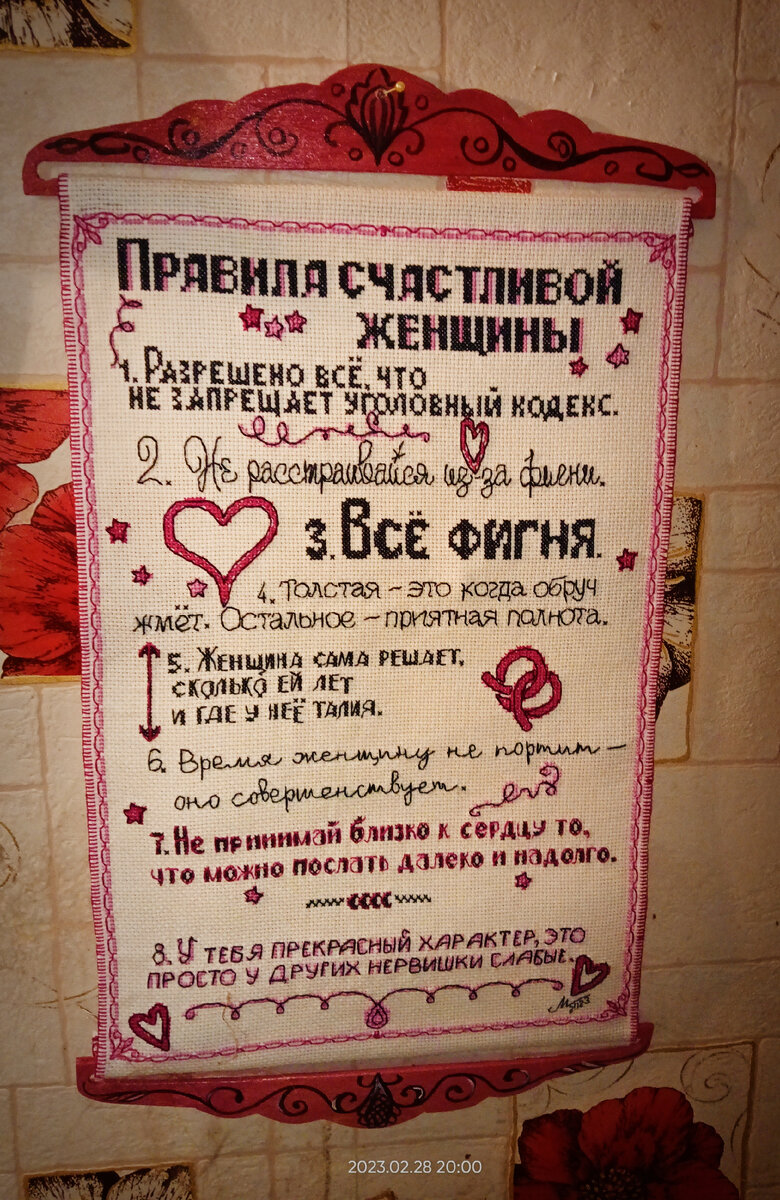 Правила счастливой
женщины
1. Разрешено всё, что
не запрещает уголовный кодекс.
2. Не расстраивайся из-за фигни.
3. Всё фигня.
4. Толстая – это когда обруч
жмёт. Остальное – приятная полнота.
5. Женщина сама решает,
сколько ей лет
и где у неё талия.
6. Время женщину не портит –
оно совершенствует.
7. Не принимай близко к сердцу то,
что можно послать далеко и надолго.
8. У тебя прекрасный характер, это
просто у других нервишки слабые.
2023.02.28 20:00